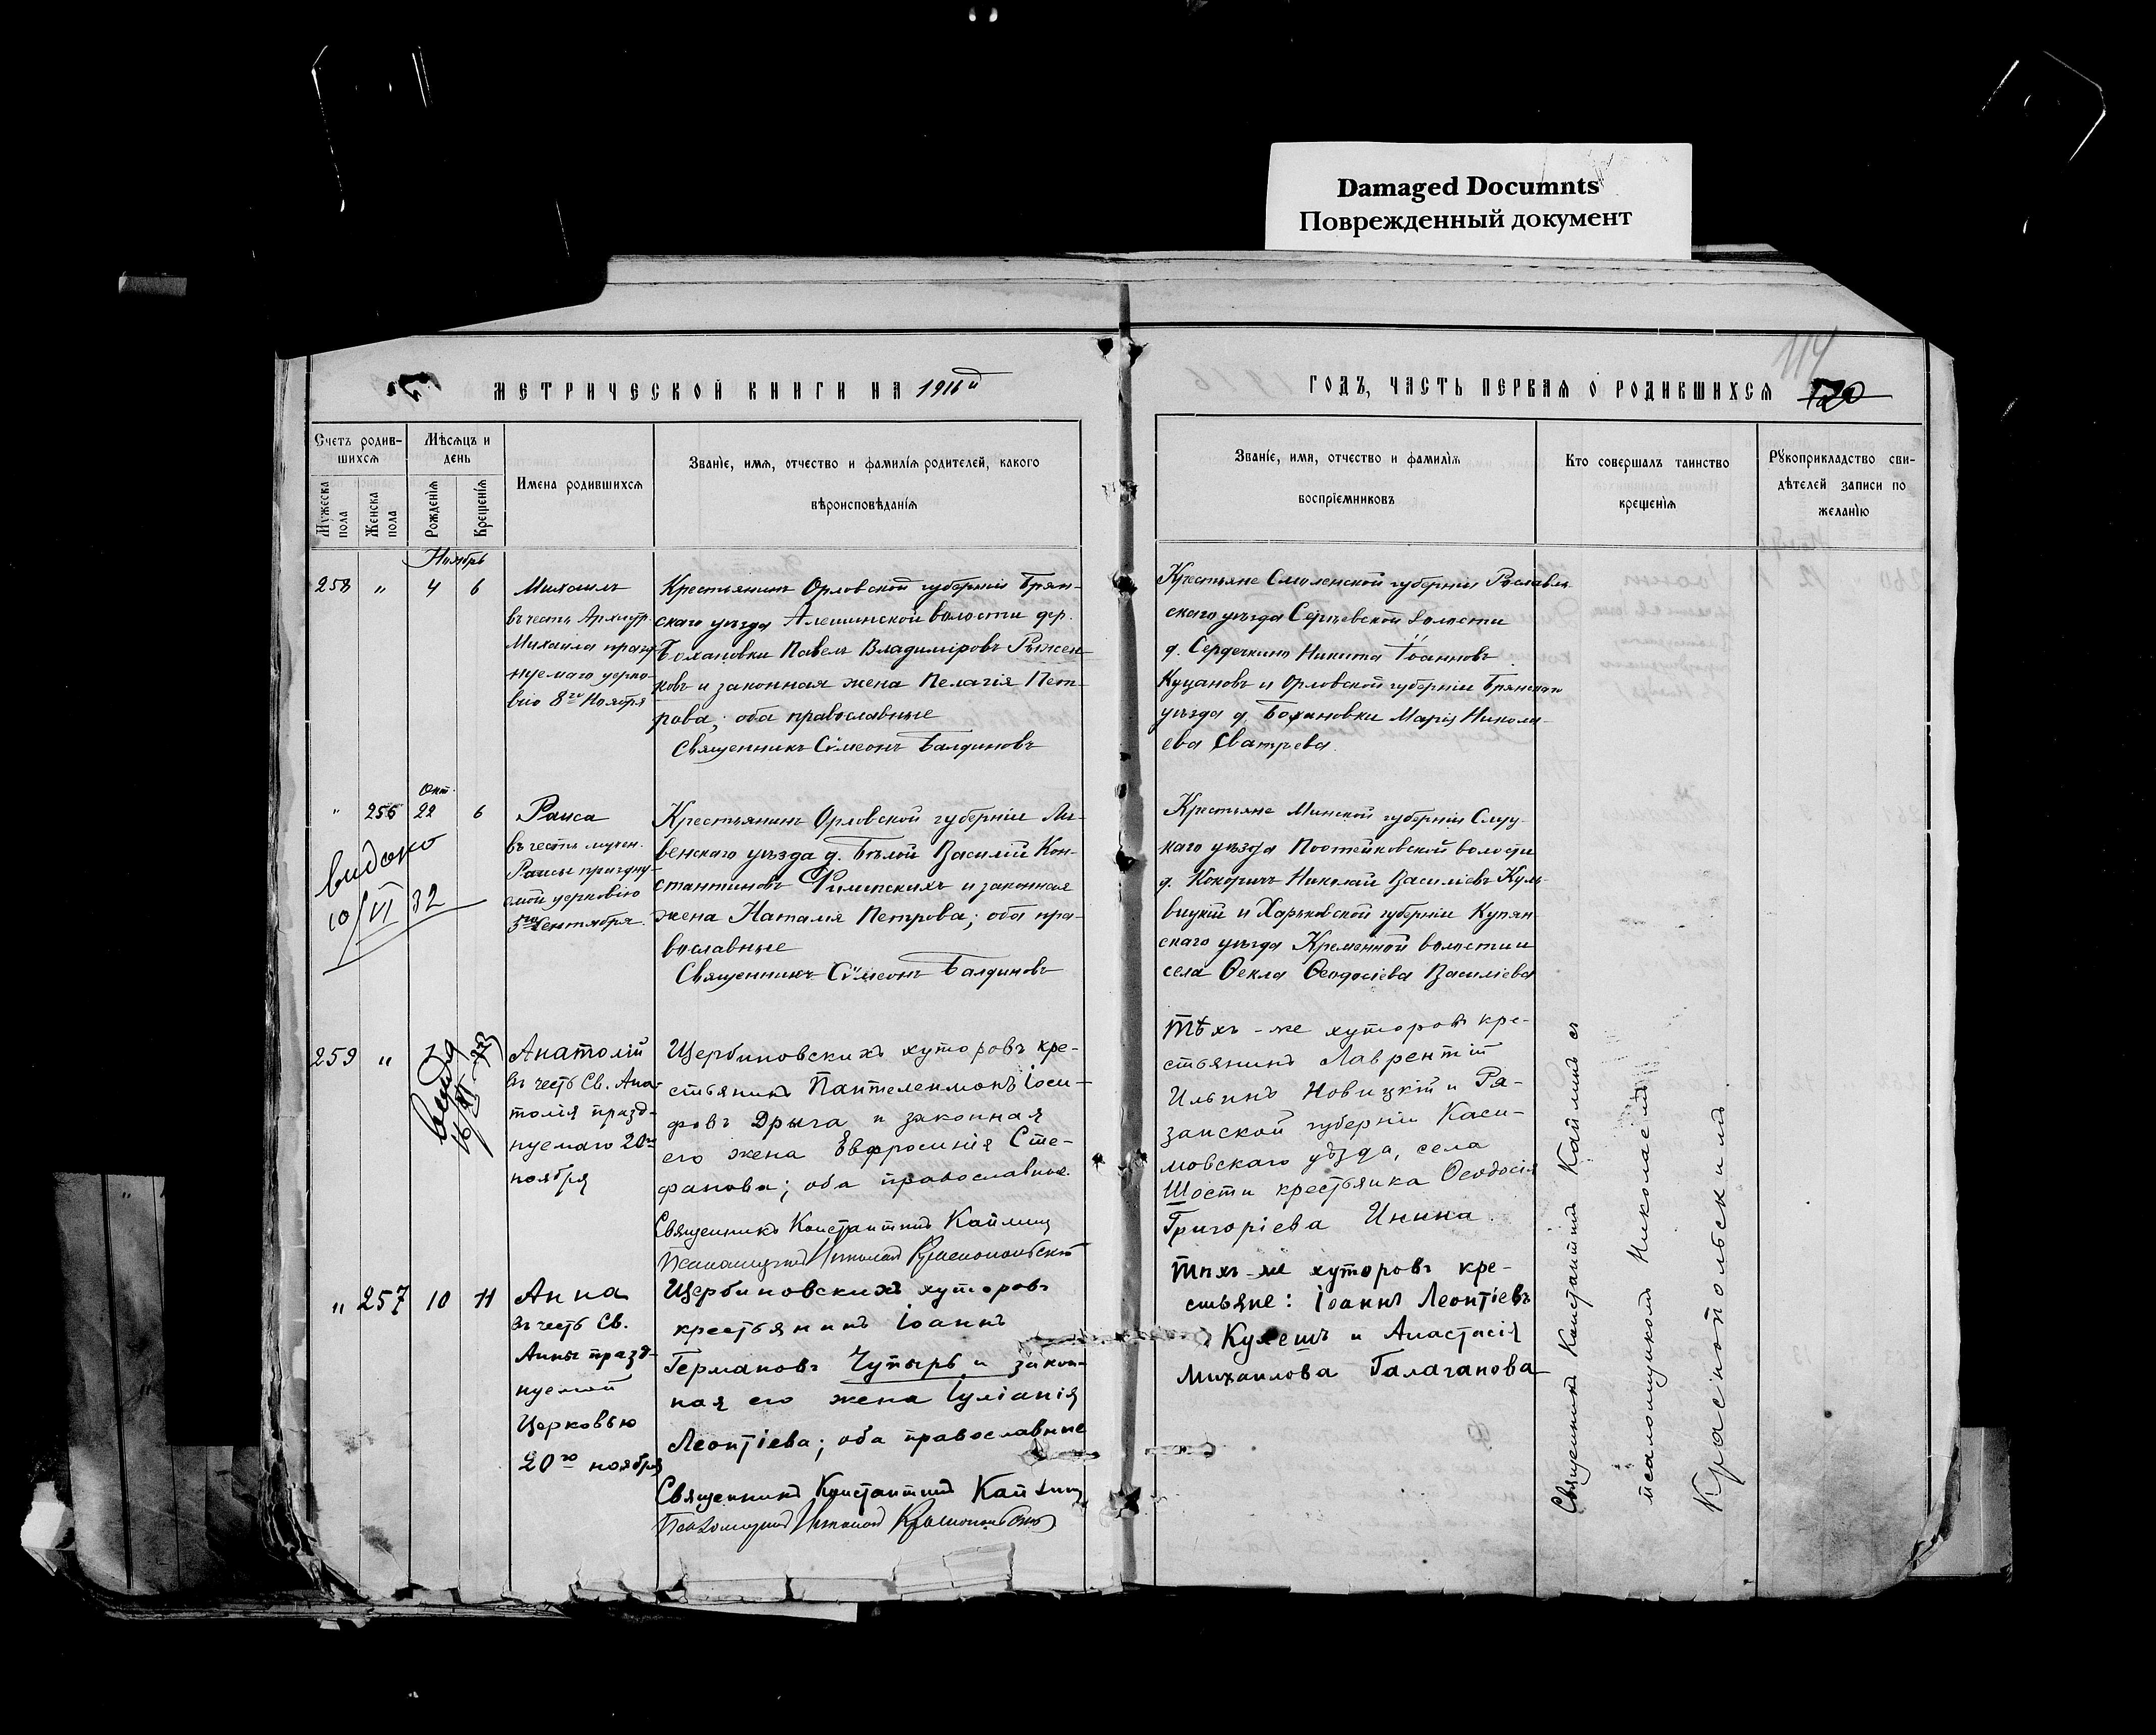 Damaged Documnts
Поврежденный документ
114
МЕТРИЧЕСКОЙ КНИГИ НА 1916й
ГОДЪ, ЧАСТЬ ПЕРВАЯ О РОДИВШИХСЯ
120
Счетъ родив-
шихся
Мужеска
пола
Женска
пола
Мѣсяцъ и
день
Рожденія
Крещенія
Имена родившихся
Званіе, имя, отчество и фамилія родителей, какого
вѣроисповѣданія
Званіе, имя, отчество и фамилія
воспріемниковъ
Кто совершалъ таинство
крещенія
Рукоприкладство сви-
дѣтелей записи по
желанію
Ноябрь
258 " 4 6
Михаилъ
въ честь Архистр.
Михаила празд
нуемаго церко-
вію 8го Ноября
Крестьянинъ Орловской губерніи Брян-
скаго уѣзда Алешинской волости дер.
Бохановки Павелъ Владиміровъ Рыжен-
ковъ и законная жена Пелагія Пет-
рова; оба православные
Священникъ Сѵмеонъ Балдиновъ
Крестьяне Смоленской губерніи Рославль
скаго уѣзда Сергѣевской волости
д. Сердечкино Никита Іоанновъ
Куцановъ и Орловской губерніи Брянскаго
уѣзда д. Бохановки Марія Никола-
ева
" 256
Окт.
22 6
видано
10/VI 32
Раиса
въ честь мучен.
Раисы праздну-
емой церковію
5го Сентября
Крестьянинъ Орловской губерніи Ли-
венскаго уѣзда д. Бѣлой Василій Кон-
стантиновъ Филипскихъ и законная
жена Наталія Петрова; оба пра-
вославные
Священникъ Сѵмеонъ Балдиновъ
Крестьяне Минской губерніи Слуц-
каго уѣзда волости
д. Кокоричъ Николай Василіевъ Куль
вицкій и Харьковской губерніи Купян
скаго уѣзда Кременной волости и
села Ѳекла Ѳеодосіева Василіева
259 "
Анатолій
въ честь Св. Ана-
толія празд-
нуемаго 20го
ноября
Щербиновскихъ хуторовъ кре-
стьянинъ Пантелеимонъ Іоси-
фовъ Дрыга и законная
его жена Евфросинія Сте-
фанова; оба православные.
Священникъ Константинъ Каплинъ
Псаломщикъ Николай Краснопольскій
Тѣхъ-же хуторовъ кре-
стьянинъ Лаврентій
Ильинъ Новицкій и Ря-
занской губерніи Каси-
мовскаго уѣзда, села
Шости крестьянка Ѳеодосія
Григоріева Инина.
" 257 10 11
Анна
въ честь Св.
Анны празд-
нуемой
Церковью
20го ноября
Щербиновскихъ хуторовъ
крестьянинъ Іоаннъ
Германовъ Чупырь и закон-
ная его жена Іуліанія
Леонтіева; оба православные
Священникъ Константинъ Каплинъ
Псаломщикъ Николай Краснопольскій
Тѣхъ-же хуторовъ кре-
стьяне: Іоаннъ Леонтіевъ
Кулешъ и Анастасія
Михаилова Галаганова
Священникъ Константинъ Каплинъ съ
псаломщикомъ Николаемъ
Краснопольскимъ